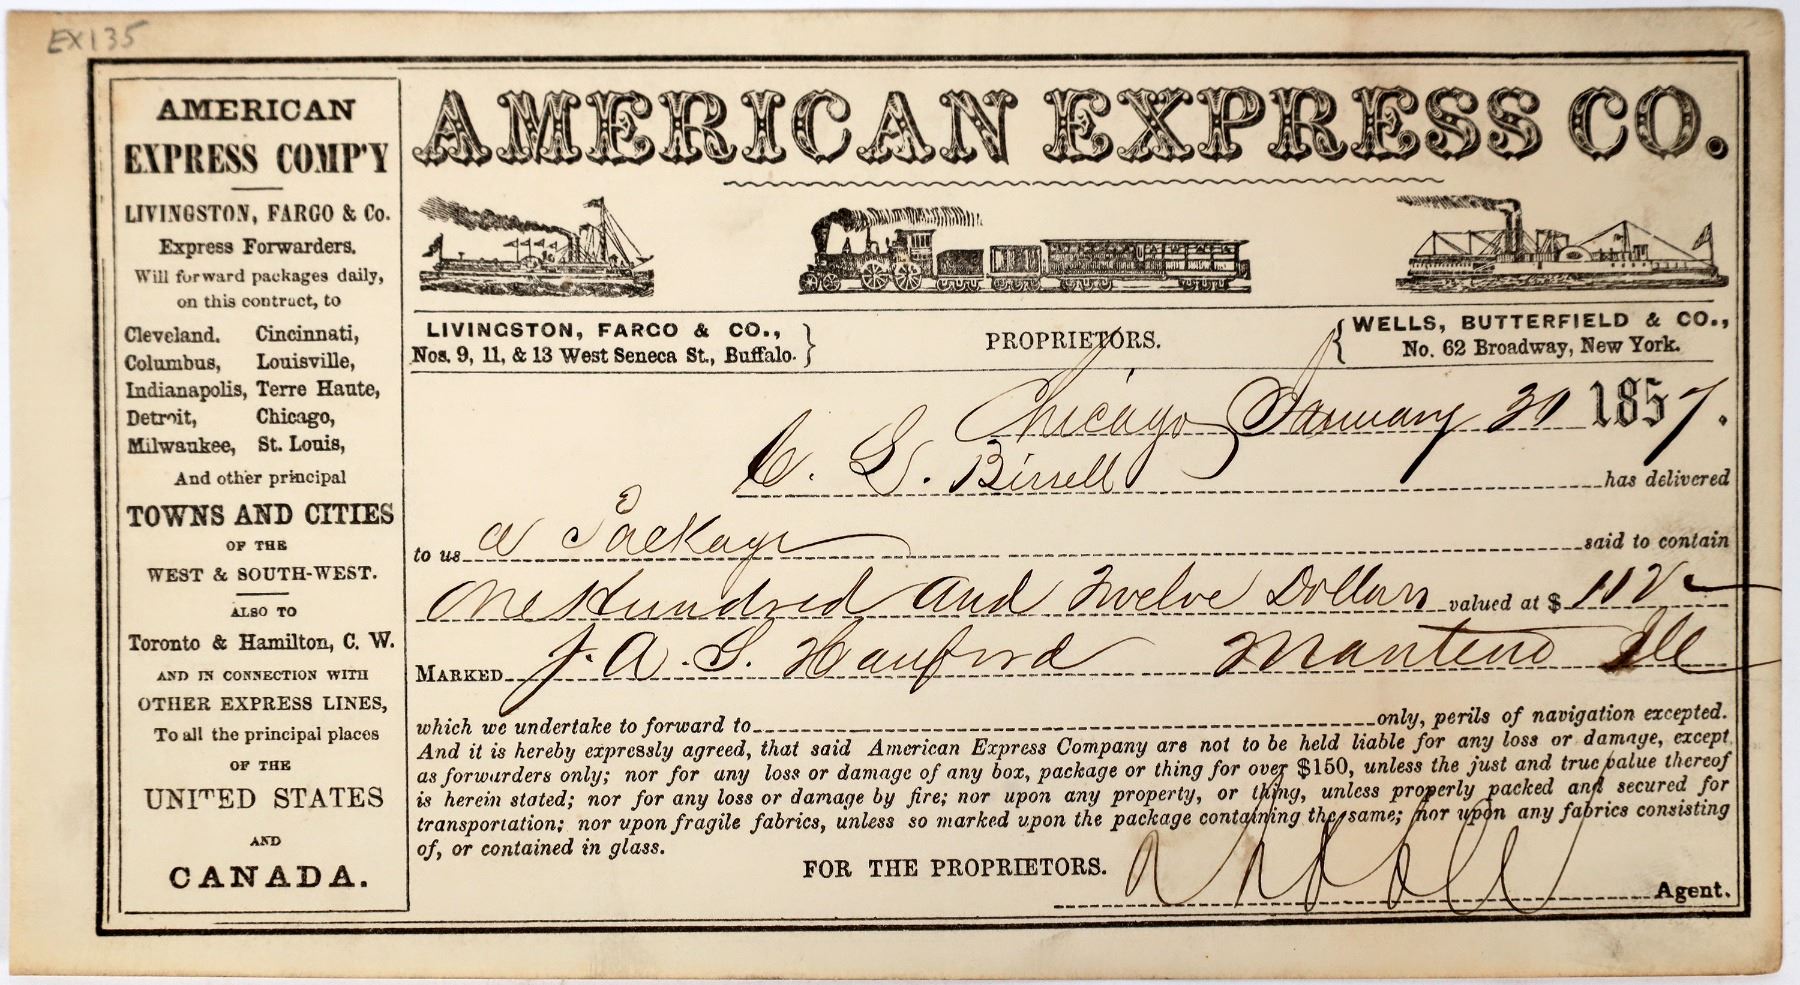 EX135
AMERICAN
EXPRESS COMP'Y
LIVINGSTON, FARGO & Co.
Express Forwarders.
Will forward packages daily,
on this contract, to
Cleveland. Cincinnati,
Columbus, Louisville,
Indianapolis, Terre Haute,
Detroit, Chicago,
Milwaukee, St. Louis,
And other principal
TOWNS AND CITIES
OF THE
WEST & SOUTH-WEST.
ALSO TO
Toronto & Hamilton, C. W.
AND IN CONNECTION WITH
OTHER EXPRESS LINES,
To all the principal places
OF THE
UNITED STATES
AND
CANADA.
AMERICAN EXPRESS CO.
LIVINGSTON, FARGO & CO.,
Nos. 9, 11, & 13 West Seneca St., Buffalo.
PROPRIETORS.
WELLS, BUTTERFIELD & CO.,
No. 62 Broadway, New York.
Chicago January 30 1857.
C. S. Birrell has delivered
to us a Package said to contain
One Hundred and Twelve Dollars valued at $ 112
MARKED J. A. S. Hanford Manteno Ill
which we undertake to forward to only, perils of navigation excepted.
And it is hereby expressly agreed, that said American Express Company are not to be held liable for any loss or damage, except
as forwarders only; nor for any loss or damage of any box, package or thing for over $150, unless the just and true value thereof
is herein stated; nor for any loss or damage by fire; nor upon any property, or thing, unless properly packed and secured for
transportation; nor upon fragile fabrics, unless so marked upon the package containing the same; nor upon any fabrics consisting
of, or contained in glass.
FOR THE PROPRIETORS.
Agent.